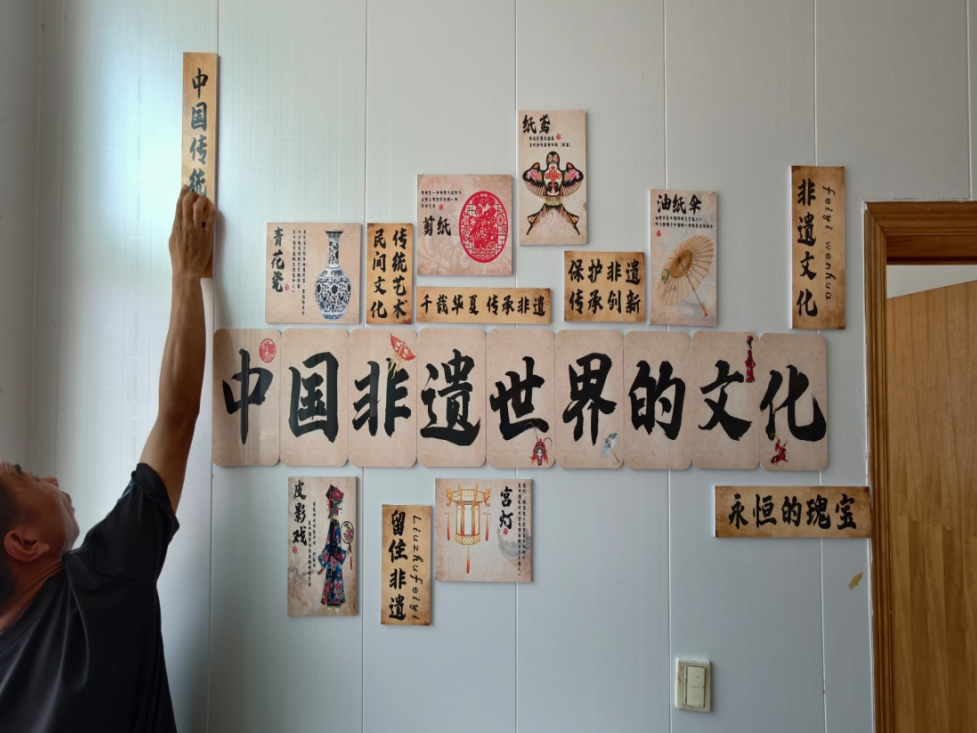 中国传统
纸鸢
剪纸
油纸伞
非遗文化
feiyi wenkua
青花瓷
传统艺术
民间文化
保护非遗
传承创新
千载华夏 传承非遗
中国非遗世界的文化
皮影戏
留住非遗
Liuzhufeiyi
宫灯
永恒的瑰宝